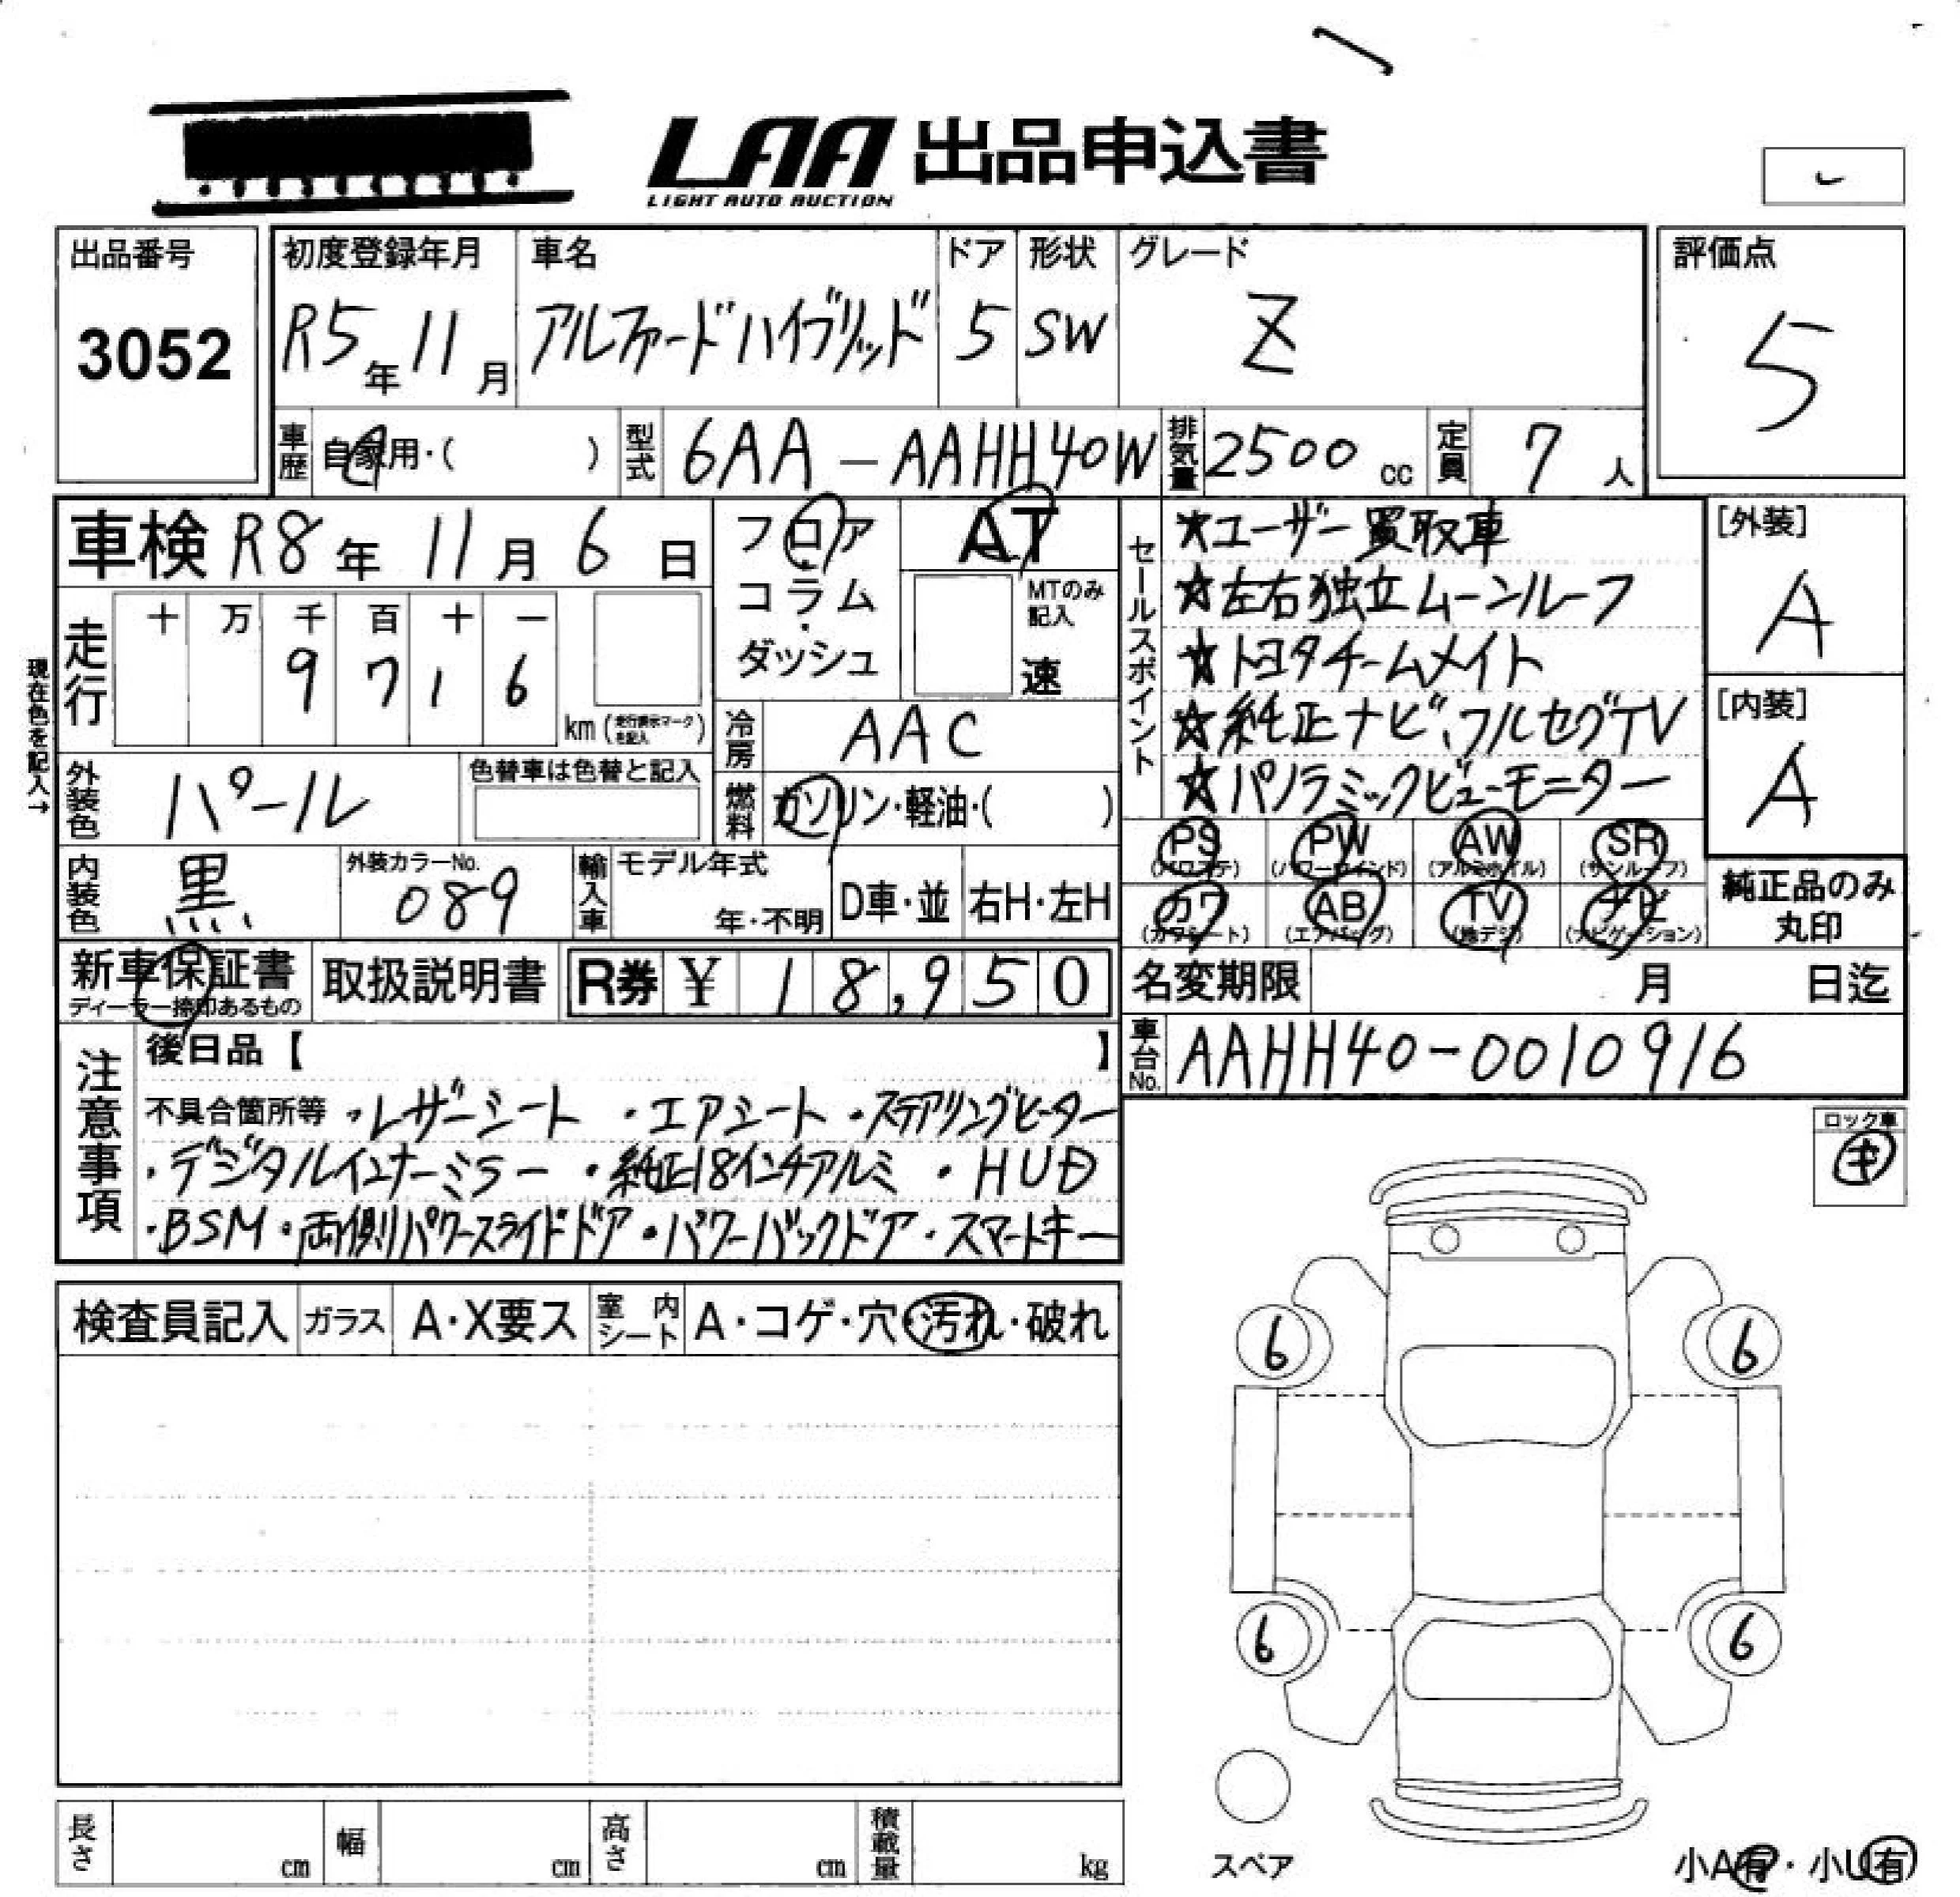 LAA 出品申込書
LIGHT AUTO AUCTION
出品番号
3052
初度登録年月
R5年11月
車名
アルファードハイブリッド
ドア
5
形状
SW
グレード
Z
評価点
5
車歴 自家用・( )
型式 6AA-AAHH40W
排気量 2500 cc
定員 7 人
車検 R8年11月6日
フロア・コラム・ダッシュ
AT
MTのみ記入
速
現在色を記入→
走行
十 万 千 百 十 一
9 7 1 6
km(走行表示マークを記入)
冷房 AAC
燃料 ガソリン・軽油・( )
外装色 パール
色替車は色替と記入
内装色 黒
外装カラーNo.
089
輸入車 モデル年式
年・不明
D車・並
右H・左H
セールスポイント
☆ユーザー買取車
☆左右独立ムーンルーフ
☆トヨタチームメイト
☆純正ナビ、フルセグTV
☆パノラミックビューモニター
[外装]
A
[内装]
A
PS (パワステ)
PW (パワーウインド)
AW (アルミホイル)
SR (サンルーフ)
カワ (カワシート)
AB (エアバッグ)
TV (地デジ)
ナビ (ナビゲーション)
純正品のみ
丸印
新車保証書
ディーラー捺印あるもの
取扱説明書
R券 ¥ 18,950
名変期限 月 日迄
車台No. AAHH40-0010916
注意事項
後日品【 】
不具合箇所等 ・レザーシート ・エアシート ・ステアリングヒーター
・デジタルインナーミラー ・純正18インチアルミ ・HUD
・BSM ・両側パワースライドドア ・パワーバックドア ・スマートキー
ロック車
キ
検査員記入
ガラス A・X要ス
室内シート A・コゲ・穴・汚れ・破れ
6
6
6
6
スペア
長さ cm
幅 cm
高さ cm
積載量 kg
小A有・小U有